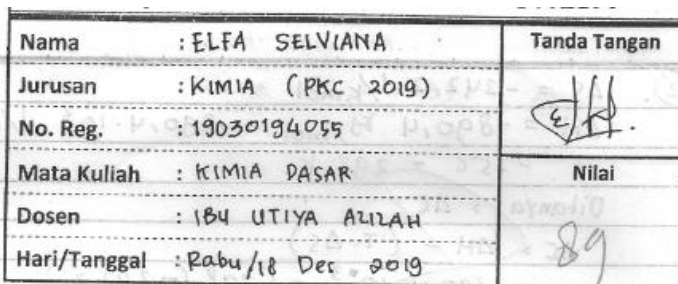 Nama : ELFA SELVIANA
Tanda Tangan
Jurusan : KIMIA (PKC 2019)
No. Reg. : 19030194055
Mata Kuliah : KIMIA DASAR
Nilai
Dosen : IBU UTIYA AZIZAH
89
Hari/Tanggal : Rabu/18 Des 2019